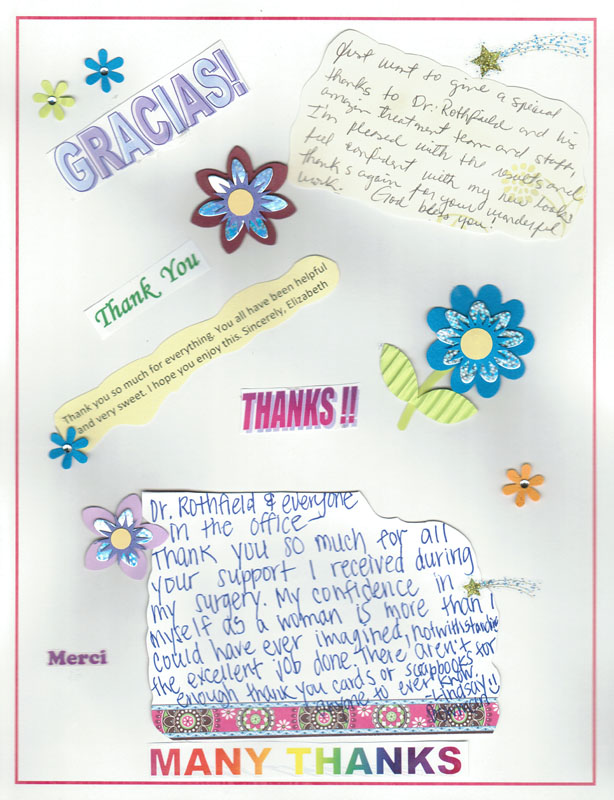 GRACIAS!
Just want to give a special
thanks to Dr. Rothfield and his
amazing treatment team and staff,
I'm pleased with the results and
feel confident with my new looks
thanks again for your wonderful
work. God bless you!
Thank You
Thank you so much for everything. You all have been helpful
and very sweet. I hope you enjoy this. Sincerely, Elizabeth
THANKS!!
Dr. Rothfield & everyone
in the office—
Thank you so much for all
your support I received during
my surgery. My confidence in
myself as a woman is more than I
could have ever imagined, notwithstanding
the excellent job done. There aren't
enough thank you cards or scrapbooks for
anyone to ever know.
-Lindsay
Merci
MANY THANKS